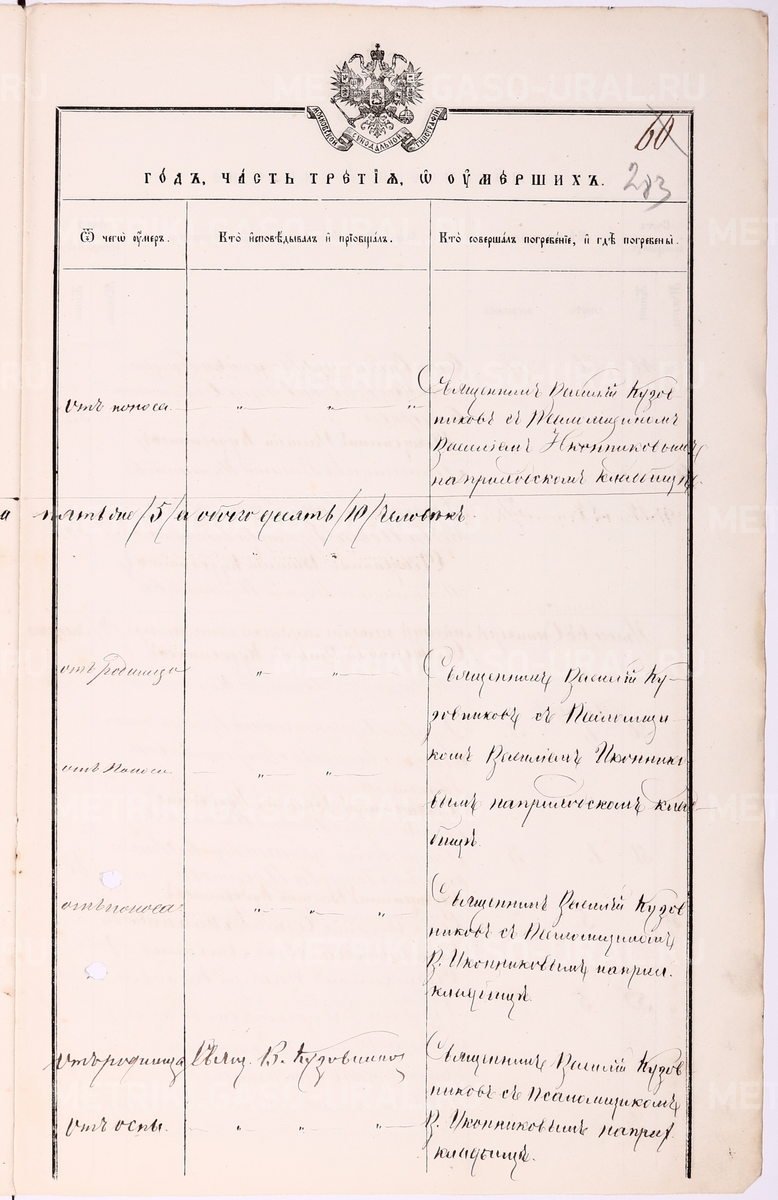 МОСКОВСКОЙ СѴНОДАЛЬНОЙ ТИПОГРАФІИ
60
283
ГО́ДЪ, ЧА́СТЬ ТРЕ́ТІѦ, Ѡ҆ ОУ҆МЕ́РШИХЪ.
Ѿ чегѡ̀ оу҆́меръ.
Кто̀ и҆сповѣ́дывалъ и҆ прїобща́лъ.
Кто̀ соверша́лъ погребе́нїе, и҆ гдѣ̀ погребены̀.
отъ поноса. „ „ „
Священникъ Василій Кузов
никовъ съ Псаломщикомъ
Василіемъ Иконниковымъ
на приходскомъ кладбищѣ.
а пятьдне /5/ а обоего десять /10/ человѣкъ.
„ „
отъ родимца „ „
Священникъ Василій Ку-
зовниковъ съ Псаломщи-
комъ Василіемъ Иконнико
вымъ на приходскомъ клад-
бищѣ.
отъ поноса „ „
отъ поноса „ „ „
Священникъ Василій Кузов
никовъ съ Псаломщикомъ
В. Иконниковымъ на прих.
кладбищѣ.
отъ родимца Свящ. В. Кузовников
Священникъ Василій Кузов
никовъ съ Псаломщикомъ
В. Иконниковымъ на прих.
кладбищѣ.
отъ оспы. „ „ „